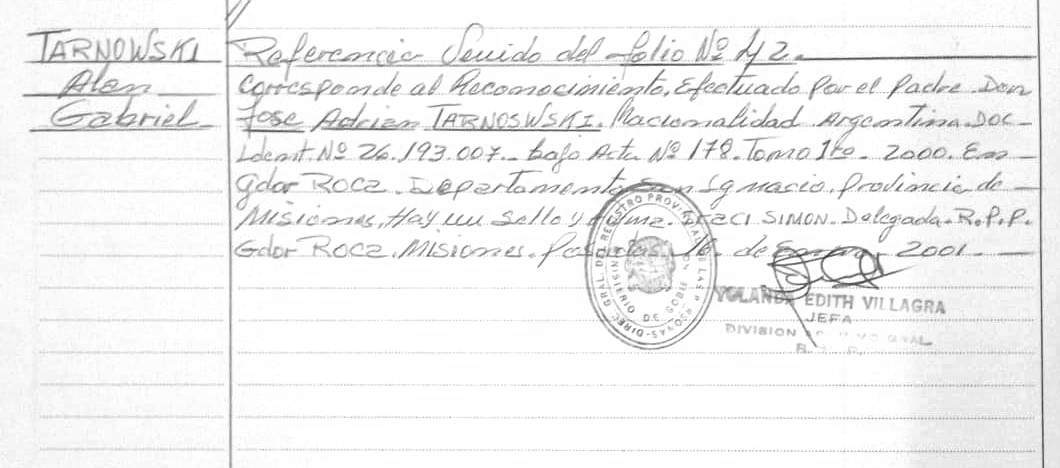 TARNOWSKI
Alan
Gabriel
Referencia Venido del folio Nº 42.
Corresponde al Reconocimiento, Efectuado por el Padre Don
Jose Adrian TARNOSWSKI. Nacionalidad Argentina. Doc-
Ident Nº 26.193.007.- bajo Acta Nº 178. Tomo 1ro. 2000. En
Gdor Roca. Departamento San Ignacio, Provincia de
Misiones, Hay un Sello y Firma. SIMON. Delegada. R.P.P.
Gdor Roca. Misiones. Posadas, 16 de Enero 2001.
DIREC. GRAL. DEL REGISTRO PROVINCIAL DE LAS PERSONAS
MINISTERIO DE GOBIERNO
YOLANDA EDITH VILLAGRA
JEFA
DIVISION